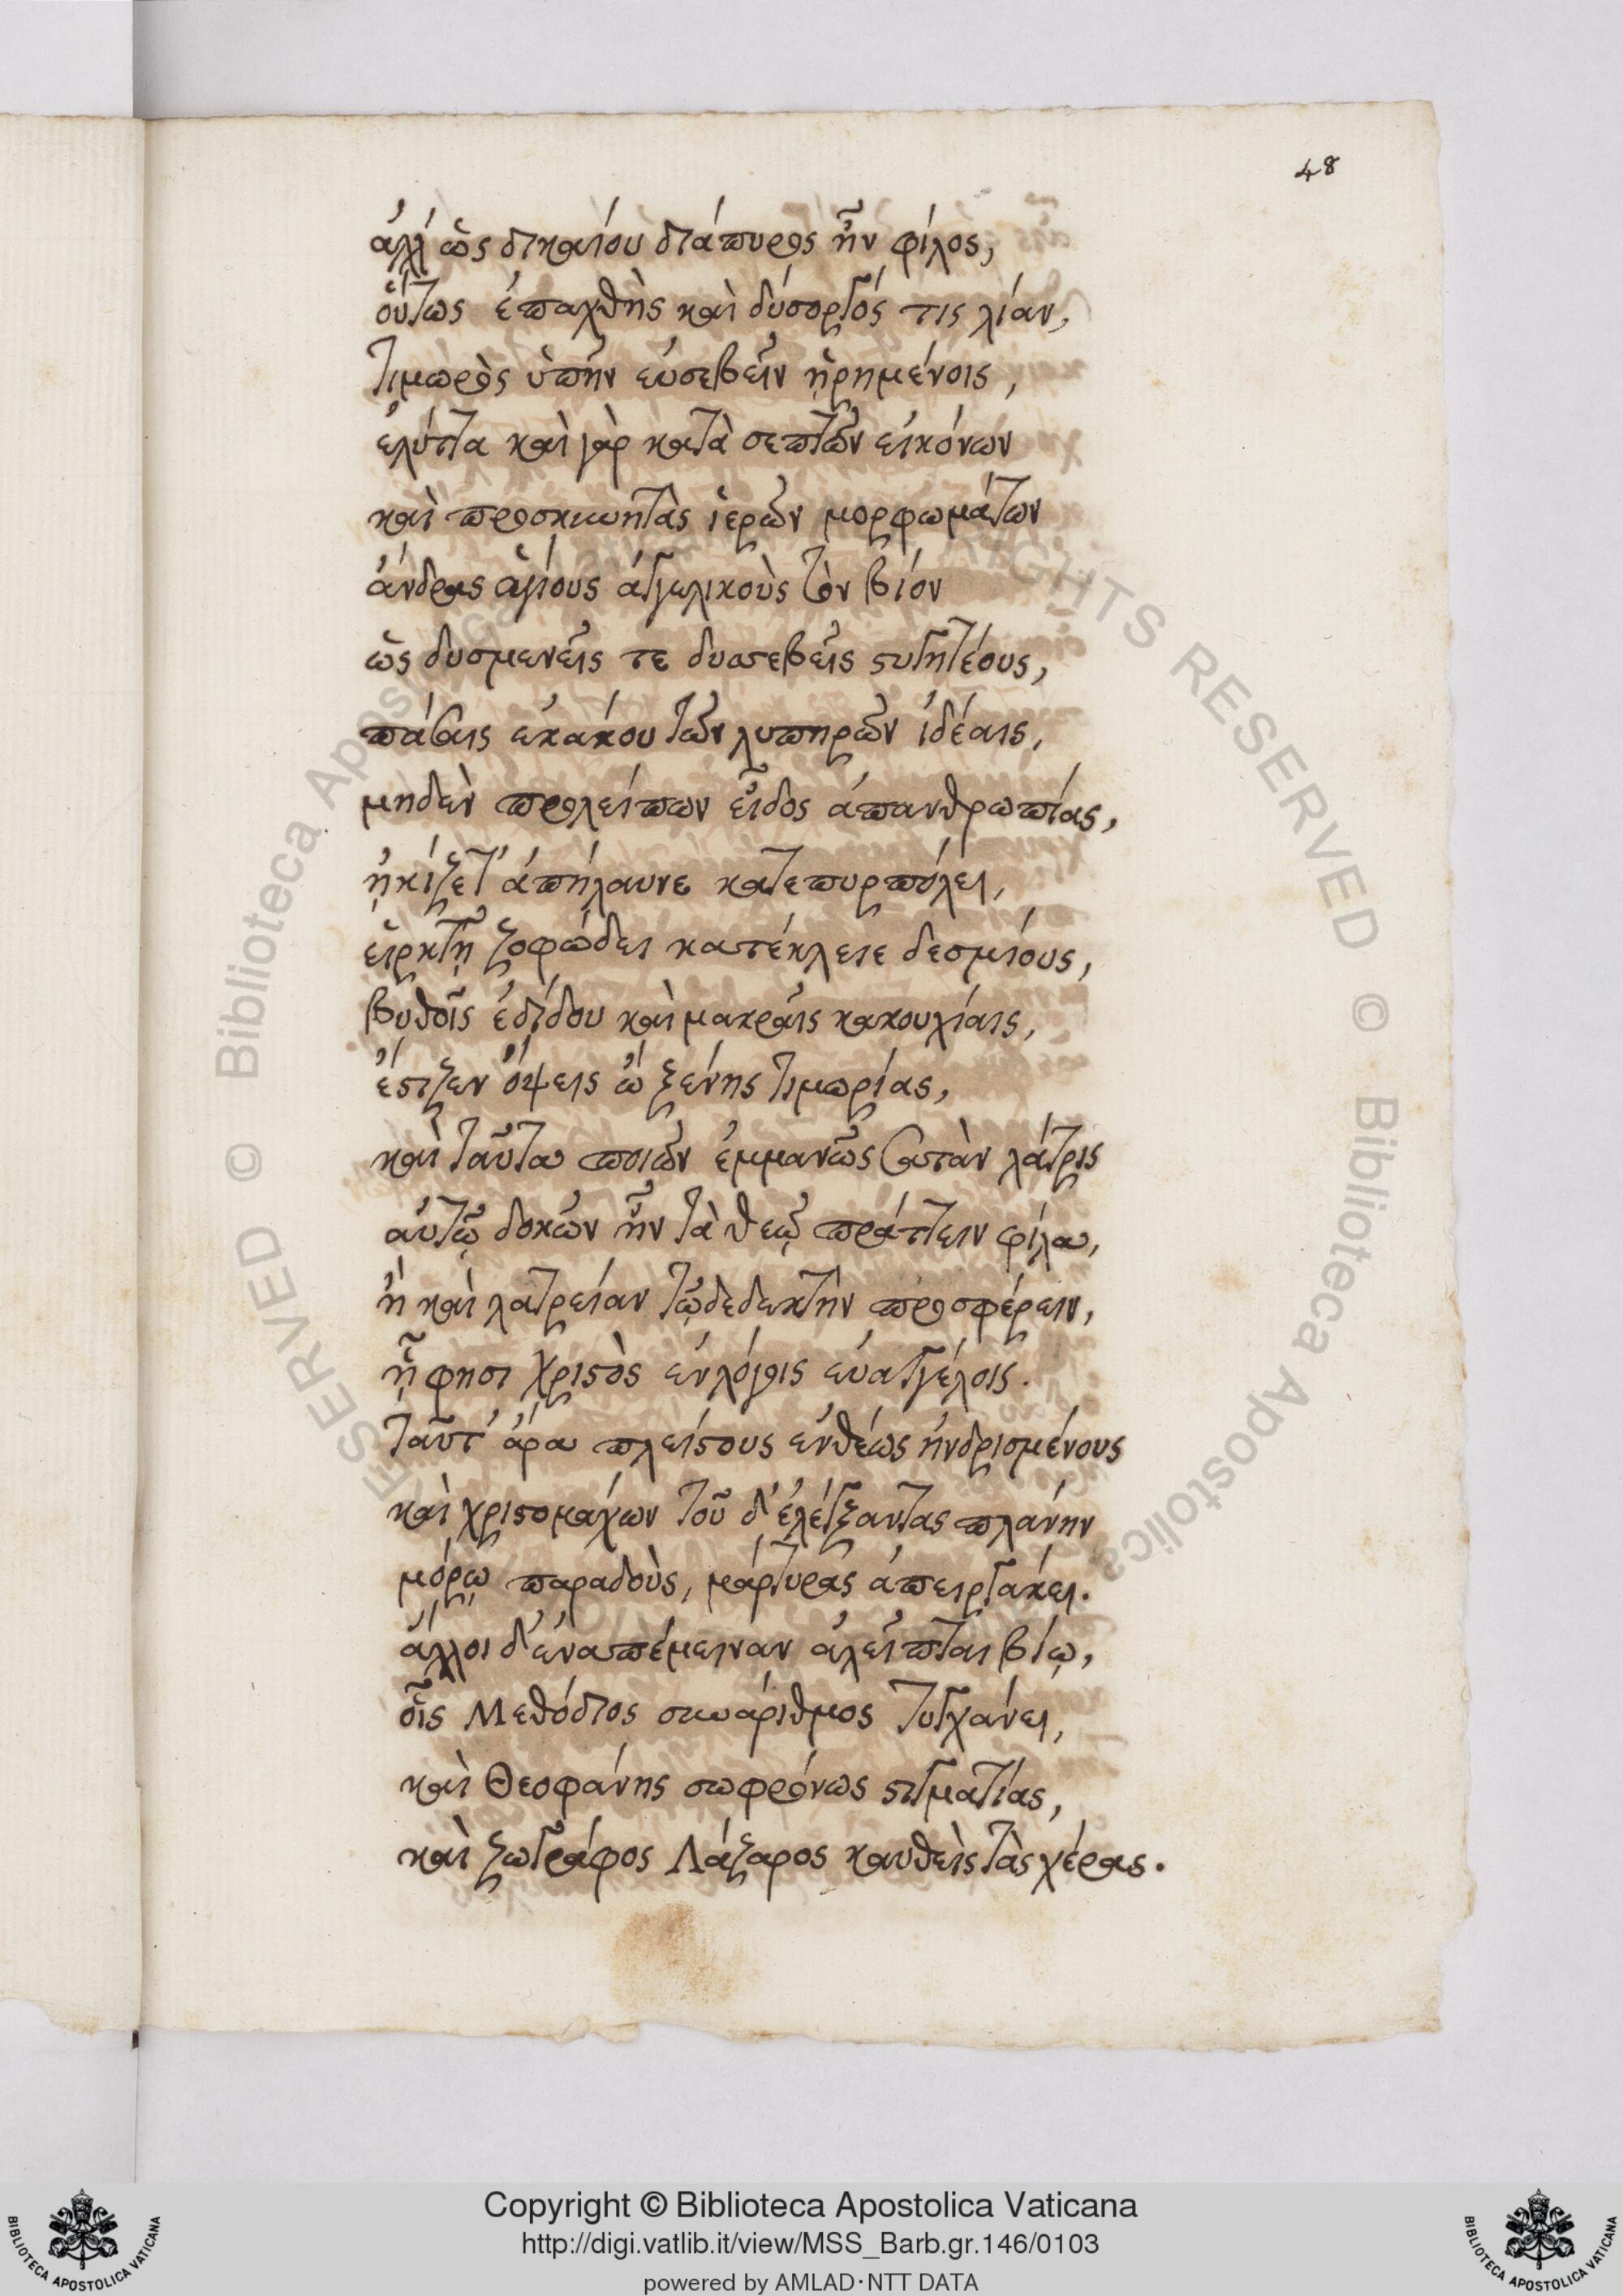 48
ἀλλ' ὡς δικαίου διάπυρος ἦν φίλος,
οὕτως ἐπαχθὴς καὶ δύσοργός τις λίαν,
τιμωρὸς ὑπῆν εὐσεβεῖν ᾑρημένοις,
ἐλύττα καὶ γὰρ κατὰ σεπτῶν εἰκόνων
καὶ προσκυνητὰς ἱερῶν μορφωμάτων
ἄνδρας ἁγίους ἀγγελικοὺς τὸν βίον
ὡς δυσμενεῖς τε δυσσεβεῖς στυγητέους,
πάσαις ἐκάκου τῶν λυπηρῶν ἰδέαις,
μηδὲν προλείπων εἶδος ἀπανθρωπίας,
ᾐκίζετ' ἀπήλαυνε κατεπυρπόλει,
εἱρκτῇ ζοφώδει κατέκλειε δεσμίους,
βυθοῖς ἐδίδου καὶ μακραῖς κακουχίαις,
ἔστιζεν ὄψεις ὢ ξένης τιμωρίας,
καὶ ταῦτα ποιῶν ἐμμανῶς σατὰν λάτρις
αὐτῷ δοκῶν ἦν τὰ θεῷ πράττειν φίλα,
ἢ καὶ λατρείαν τῷδε δεκτὴν προσφέρειν,
ᾗ φησι χριστὸς ἐν λόγοις εὐαγγέλοις.
ταῦτ' ἄρα πλείστους ἐνθέως ἠνδρισμένους
καὶ χριστομάχων τοῦ δ' ἐλέγξαντας πλάνην
μόρῳ παραδοὺς, μάρτυρας ἀπειργάκει.
ἄλλοι δ' ἐναπέμειναν ἀλεῖπται βίῳ,
οἷς Μεθόδιος συνάριθμος τυγχάνει,
καὶ Θεοφάνης σωφρόνως στιγματίας,
καὶ ζωγράφος Λάζαρος καυθεὶς τὰς χέρας.
© Biblioteca Apostolica Vaticana ALL RIGHTS RESERVED © Biblioteca Apostolica Vaticana ALL RIGHTS RESERVED
Copyright © Biblioteca Apostolica Vaticana
http://digi.vatlib.it/view/MSS_Barb.gr.146/0103
powered by AMLAD·NTT DATA
BIBLIOTECA APOSTOLICA VATICANA
BIBLIOTECA APOSTOLICA VATICANA